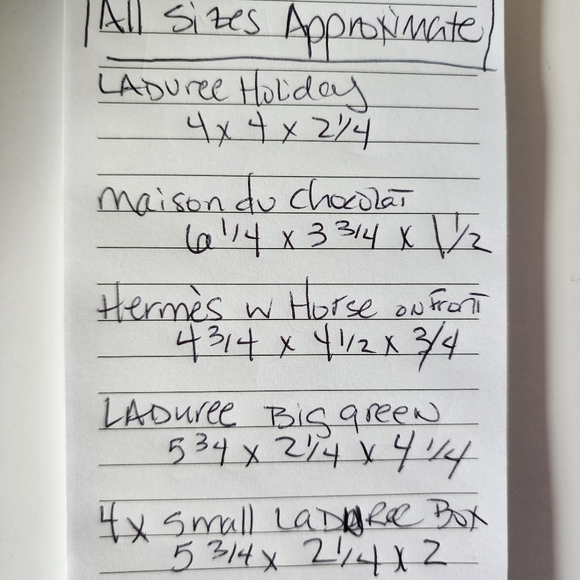 All Sizes Approximate
LADUREE Holiday
4 x 4 x 2 1/4
Maison du Chocolat
6 1/4 x 3 3/4 x 1 1/2
Hermès w Horse on Front
4 3/4 x 4 1/2 x 3/4
LADUREE Big green
5 34 x 2 1/4 x 4 1/4
4x Small LADUREE Box
5 3/4 x 2 1/4 x 2